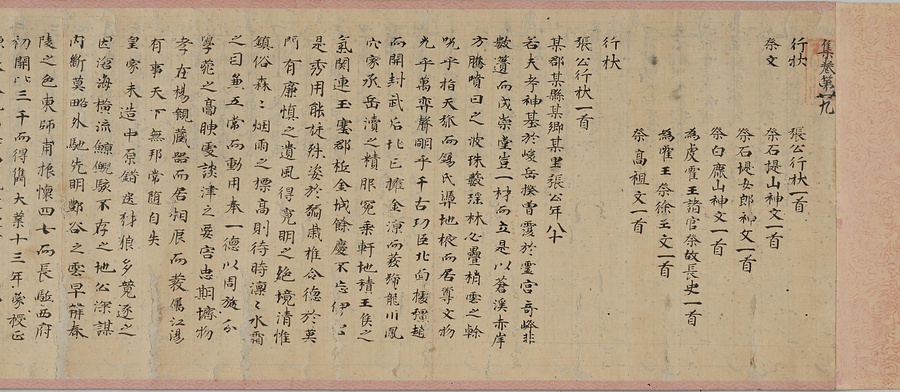 集卷第廿九
行狀 張公行狀一首
祭文 祭石堤山神文一首
祭石堤女郎神文一首
祭白鹿山神文一首
為虔霍王諸官祭故長史一首
為霍王祭徐王文一首
祭高祖文一首
行狀
張公行狀一首
某郡某縣某鄉某里張公年八十
若夫考神基於峻岳揆曾覆於靈宮奇峰非
數簣而成崇堂豈一材而立是以蒼溪赤岸
方騰噴日之波珠藪瑤林必疊梢雲之幹
況乎指天狐而錫氏據地棱而居尊文物
光乎萬葉聲明乎千古功臣北面榎彊趙
而開封武后北三擁金涼而發蹄龍川鳳
穴家承岳瀆之精服冕乘軒地積王侯之
氣關連玉塞郡柢金城餘慶不忘伊公
是秀用能誕殊姿於獨肅惟令德於莫
門有廉慎之遺風得寬明之絕境清惟
鎮俗森〻烟雨之標高則待時凜〻水霜
之日兼五常而動用奉一德以周旋分
學苑之高腴雯談津之要害忠期壙物
孝在楊親藏器而居相辰而發屬江湯
有事天下無邦常隨自失
皇家未造中原錯逐豺狼多競逐之
因滄海橫流鯨鯢駭不存之地公深謀
內斷莫略外馳先明鄭谷之雲早辭春
陵之色東師甫振懷四七而長駈西府
初開比三千而得儁大業十三年蒙授正